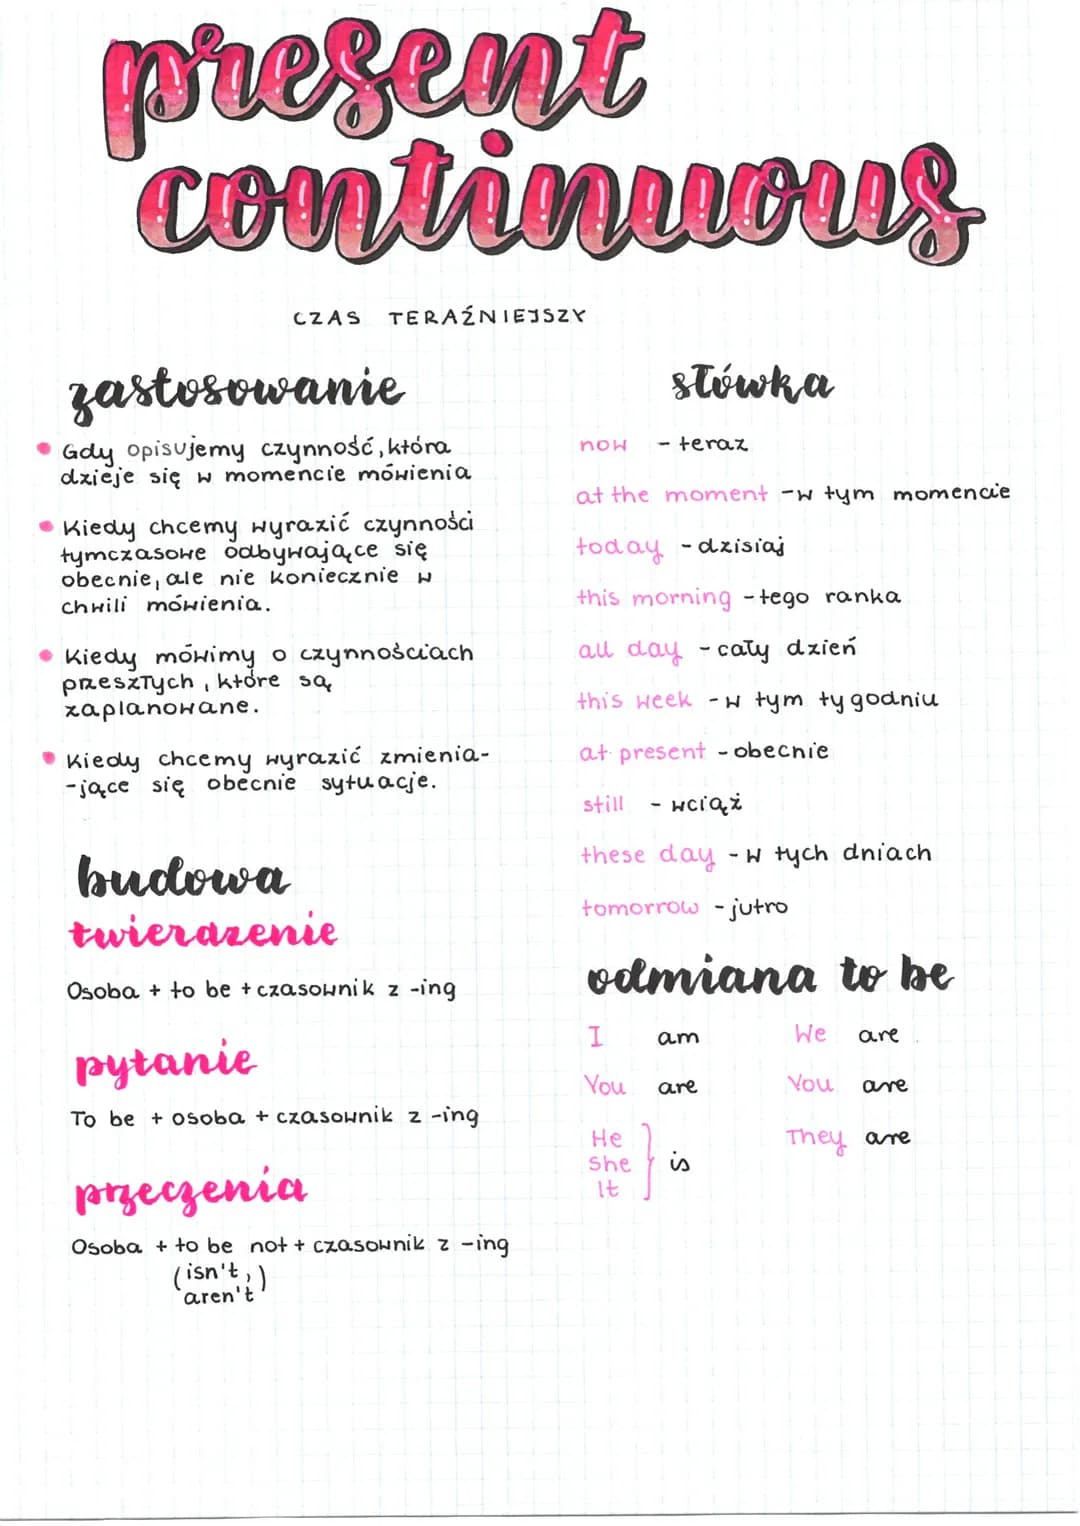 present
continuous
CZAS TERAŹNIEJSZY
zastosowanie
Gdy opisujemy czynność, która
dzieje się w momencie mówienia
Kiedy chcemy wyrazić czynności
tymczasowe odbywające się
obecnie, ale nie koniecznie w
chwili mówienia.
Kiedy mówimy o czynnościach
przeszłych, które są
zaplanowane.
Kiedy chcemy wyrazić zmienia-
-jące się obecnie sytuacje.
budowa
twierdzenie
Osoba + to be + czasownik z -ing
pytanie
To be + osoba + czasownik z -ing
przeczenia
Osoba + to be not + czasownik z -ing
(isn't,)
aren't
słówka
now - teraz
at the moment - w tym momencie
today - dzisiaj
this morning - tego ranka
all day - cały dzień
this week - w tym tygodniu
at present - obecnie
still - wciąż
these day - w tych dniach
tomorrow - jutro
odmiana to be
I am We are
You are You are
He They are
She } is
It